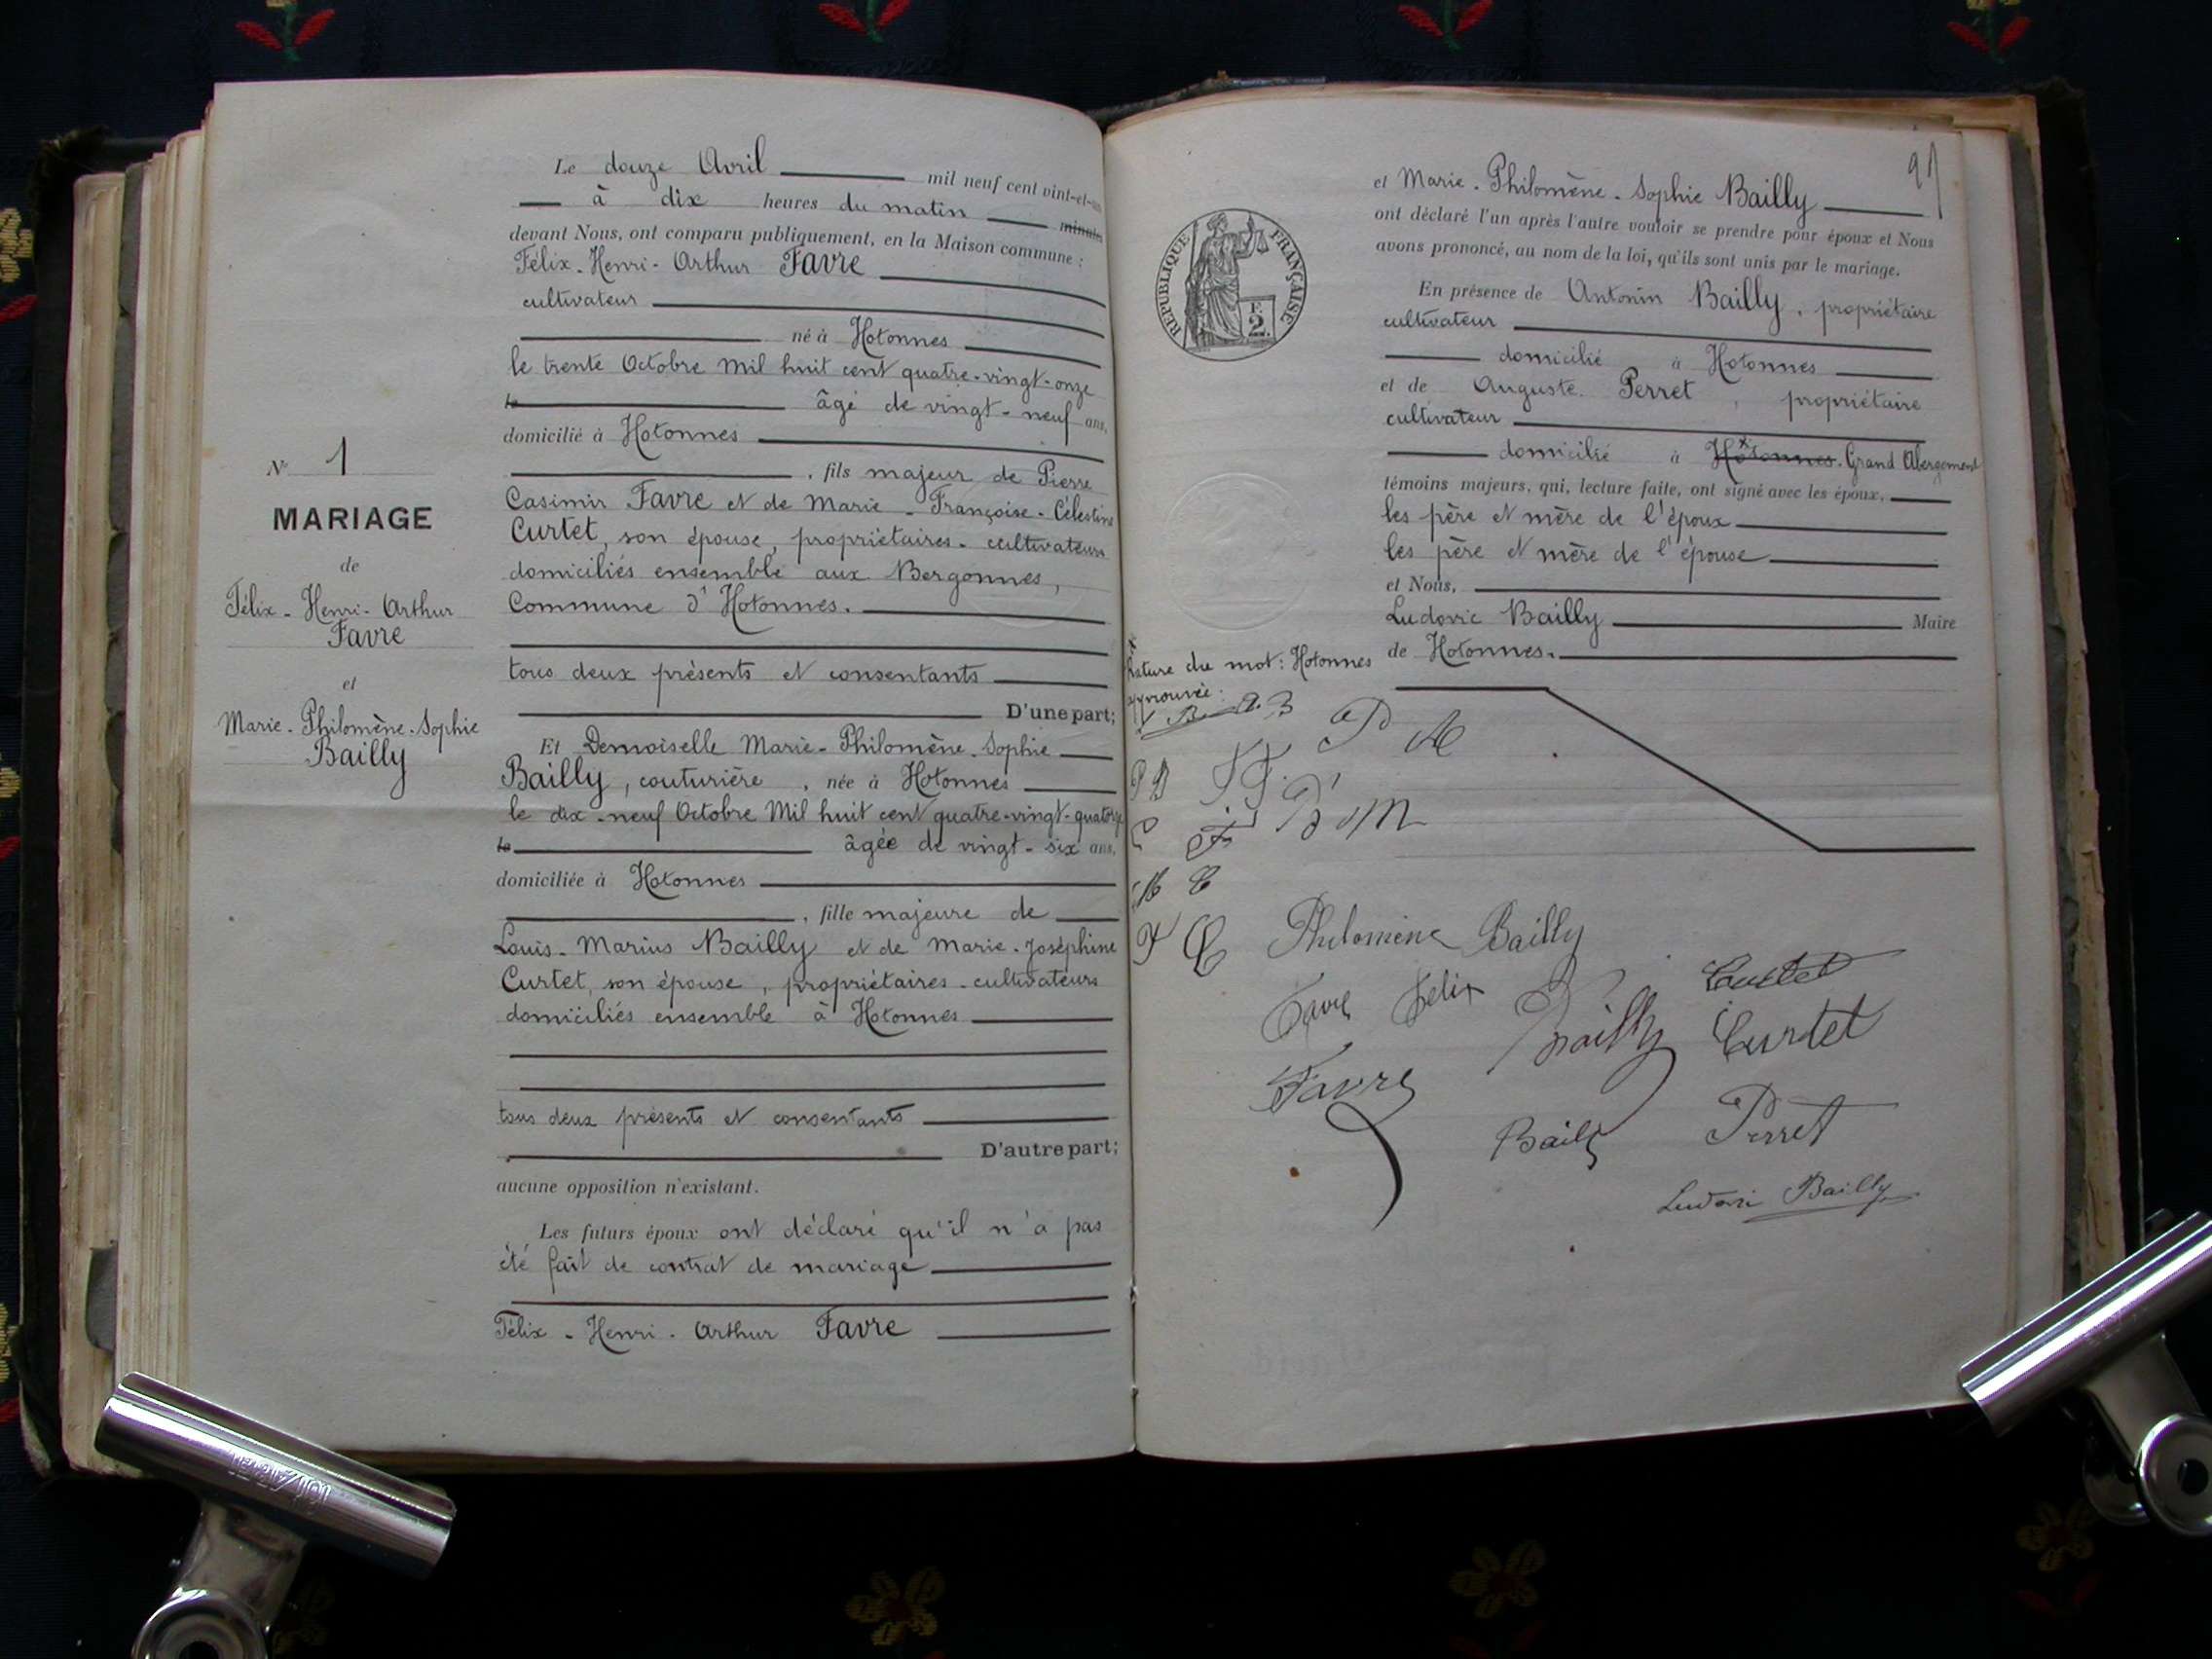 N° 1
MARIAGE
de
Félix - Henri - Arthur
Favre
et
Marie - Philomène - Sophie
Bailly
Le douze Avril mil neuf cent vint-et-un
à dix heures du matin minutes
devant Nous, ont comparu publiquement, en la Maison commune :
Félix - Henri - Arthur Favre
cultivateur
né à Hotonnes
le trente Octobre Mil huit cent quatre-vingt-onze
le âgé de vingt-neuf ans,
domicilié à Hotonnes
, fils majeur de Pierre
Casimir Favre et de Marie - Françoise - Célestine
Curtet, son épouse, propriétaires - cultivateurs
domiciliés ensemble aux Bergonnes,
Commune d'Hotonnes.
tous deux présents et consentants
D'une part;
Et Demoiselle Marie - Philomène - Sophie
Bailly, couturière, née à Hotonnes
le dix-neuf Octobre Mil huit cent quatre-vingt-quatorze
le âgée de vingt-six ans,
domiciliée à Hotonnes
, fille majeure de
Louis - Marius Bailly et de Marie - Joséphine
Curtet, son épouse, propriétaires - cultivateurs
domiciliés ensemble à Hotonnes
tous deux présents et consentants
D'autre part;
aucune opposition n'existant.
Les futurs époux ont déclaré qu'il n'a pas
été fait de contrat de mariage
Félix - Henri - Arthur Favre
91
RÉPUBLIQUE FRANÇAISE
F.
2
et Marie - Philomène - Sophie Bailly
ont déclaré l'un après l'autre vouloir se prendre pour époux et Nous
avons prononcé, au nom de la loi, qu'ils sont unis par le mariage.
En présence de Antonin Bailly, propriétaire
cultivateur
domicilié à Hotonnes
et de Auguste Perret, propriétaire
cultivateur
domicilié à Hotonnes. Grand Abergement
témoins majeurs, qui, lecture faite, ont signé avec les époux,
les père et mère de l'époux
les père et mère de l'épouse
et Nous,
Ludovic Bailly Maire
de Hotonnes.
Rature du mot : Hotonnes
approuvée :
Philomène Bailly
Favre Felix
Bailly
Curtet
Curtet
Favre
Bailly
Perret
Ludovic Bailly